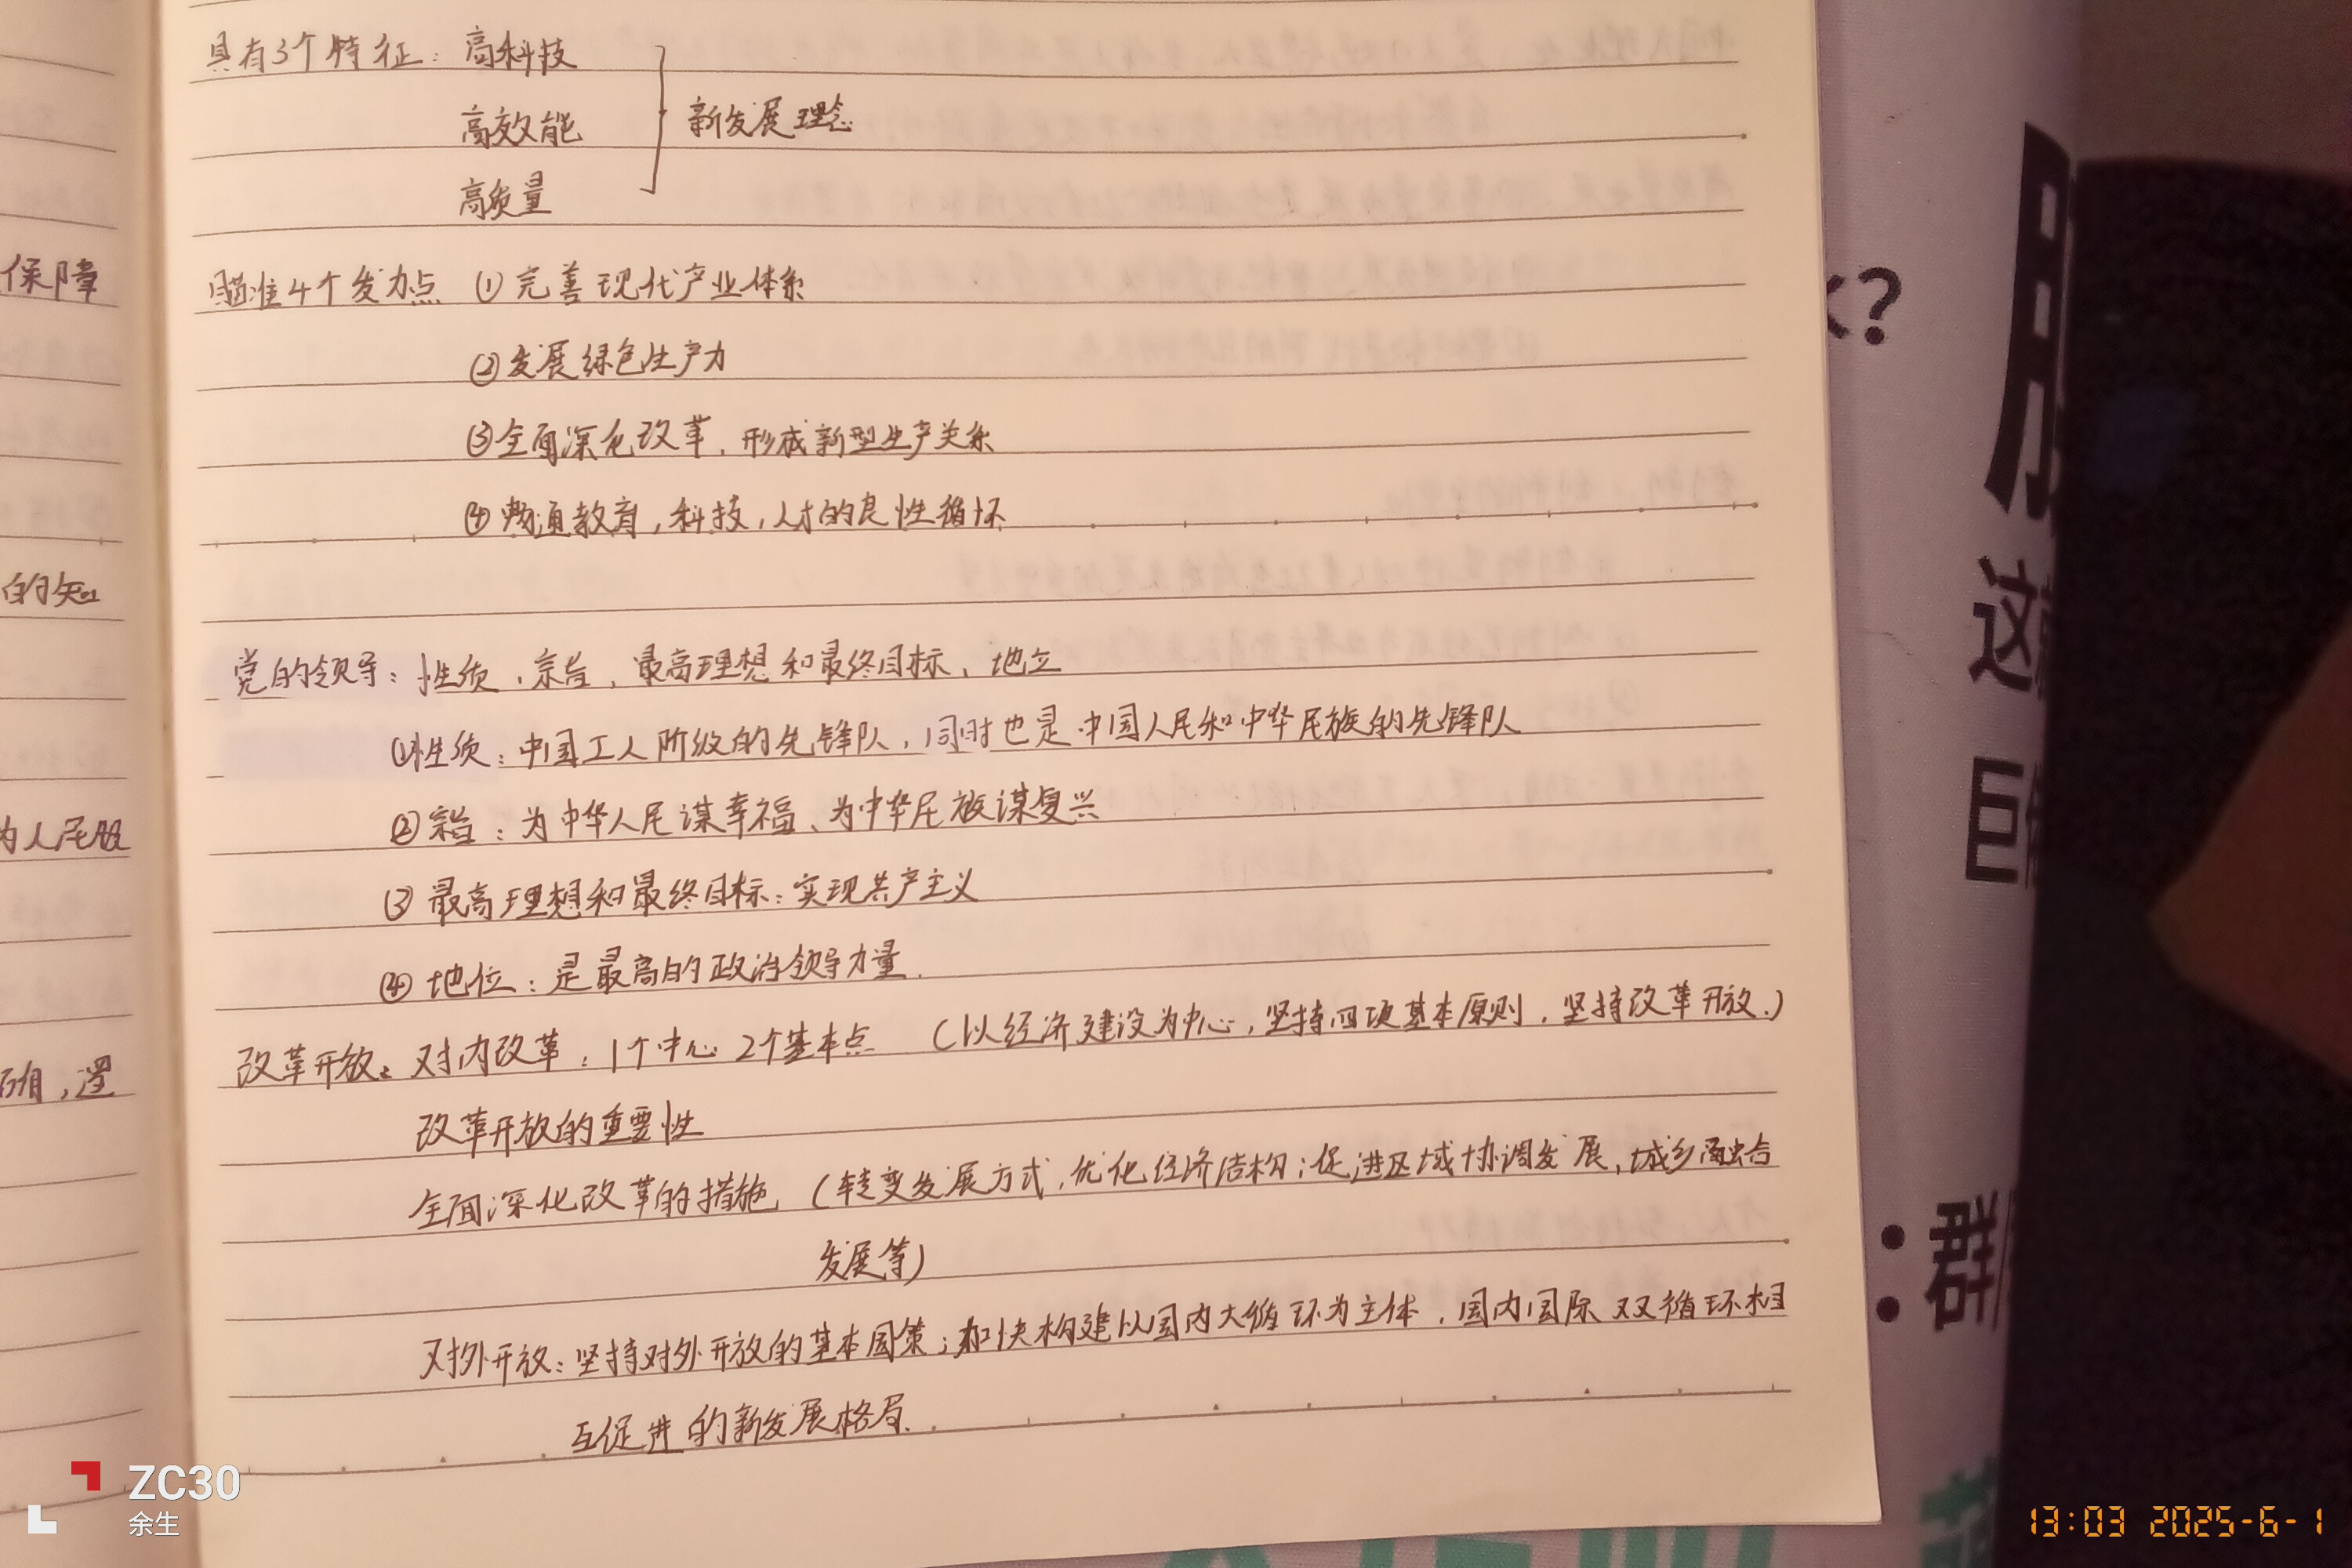 具有3个特征：高科技
高效能
高质量
新发展理念
瞄准4个发力点 ①完善现代产业体系
②发展绿色生产力
③全面深化改革，形成新型生产关系
④畅通教育，科技，人才的良性循环
党的领导：性质，宗旨，最高理想和最终目标，地位
①性质：中国工人阶级的先锋队，同时也是中国人民和中华民族的先锋队
②宗旨：为中华人民谋幸福、为中华民族谋复兴
③最高理想和最终目标：实现共产主义
④地位：是最高的政治领导力量.
改革开放：对内改革：1个中心 2个基本点 （以经济建设为中心，坚持四项基本原则，坚持改革开放.）
改革开放的重要性
全面深化改革的措施（转变发展方式，优化经济结构；促进区域协调发展，城乡融合
发展等）
对外开放：坚持对外开放的基本国策；加快构建以国内大循环为主体，国内国际双循环相
互促进的新发展格局.
保障
的知
为人民服
，坚
？
这
巨
：群
ZC30
余生
13:03 2025-6-1